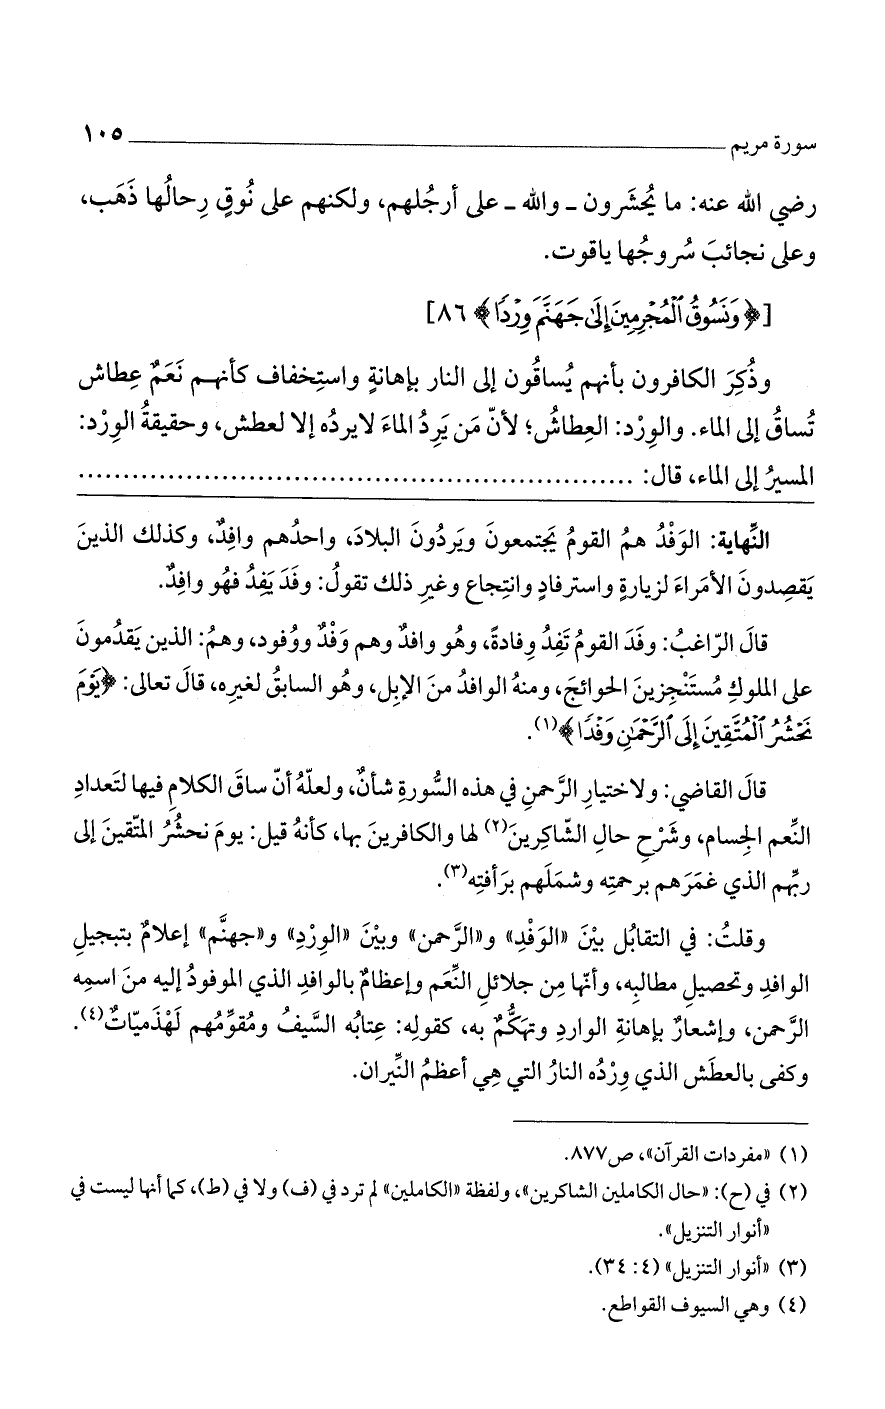 سورة مريم ١٠٥
رضي الله عنه: ما يُحشَرون ـ والله ـ على أرجُلهم، ولكنهم على نُوقٍ رِحالُها ذَهَب،
وعلى نجائبَ سُروجُها ياقوت.
[﴿وَنَسُوقُ ٱلْمُجْرِمِينَ إِلَىٰ جَهَنَّمَ وِرْدًا﴾ ٨٦]
وذُكِرَ الكافرون بأنهم يُساقُون إلى النار بإهانةٍ واستِخفاف كأنهم نَعَمٌ عِطاش
تُساقُ إلى الماء. والوِرْد: العِطاشُ؛ لأنّ مَن يَرِدُ الماءَ لا يردُه إلا لعطش، وحقيقةُ الوِرْد:
المسيرُ إلى الماء، قال: ................................................................
النِّهاية: الوَفْدُ همُ القومُ يَجتمعونَ ويَردُونَ البلادَ، واحدُهم وافِدٌ، وكذلك الذينَ
يَقصِدونَ الأمَراءَ لزيارةٍ واسترفادٍ وانتِجاع وغيرِ ذلك تقولُ: وفَدَ يَفِدُ فهُو وافِدٌ.
قالَ الرّاغبُ: وفَدَ القومُ تَفِدُ وِفادةً، وهُو وافدٌ وهم وَفْدٌ ووُفود، وهمُ: الذين يَقدُمونَ
على الملوكِ مُستَنْجِزينَ الحوائجَ، ومنهُ الوافدُ منَ الإبِل، وهُو السابقُ لغيرِه، قالَ تعالى: ﴿يَوْمَ
نَحْشُرُ ٱلْمُتَّقِينَ إِلَى ٱلرَّحْمَٰنِ وَفْدًا﴾(١).
قالَ القاضي: ولاختيارِ الرَّحمنِ في هذه السُّورةِ شأنٌ، ولعلّهُ أنّ ساقَ الكلامِ فيها لتَعدادِ
النِّعم الجِسام، وشَرْحِ حالِ الشّاكِرينَ(٢) لها والكافرينَ بها، كأنهُ قيل: يومَ نحشُرُ المتّقينَ إلى
ربِّهم الذي غمَرَهم برحمتِه وشمَلَهم برَأفتِه(٣).
وقلتُ: في التقابُل بيْنَ «الوَفْدِ» و«الرَّحمن» وبيْنَ «الوِرْدِ» و«جهنَّم» إعلامٌ بتبجيلِ
الوافدِ وتحصيلِ مطالبِه، وأنّها مِن جلائلِ النِّعَم وإعظامٌ بالوافدِ الذي الموفودُ إليه منَ اسمِه
الرَّحمن، وإشعارٌ بإهانةِ الواردِ وتهكُّمٌ به، كقولِه: عِتابُه السَّيفُ ومُقوِّمُهم لَهْذَميّاتٌ(٤).
وكفى بالعطَش الذي وِرْدُه النارُ التي هِي أعظمُ النِّيران.
(١) «مفردات القرآن»، ص٨٧٧.
(٢) في (ح): «حال الكاملين الشاكرين»، ولفظة «الكاملين» لم ترد في (ف) ولا في (ط)، كما أنها ليست في
«أنوار التنزيل».
(٣) «أنوار التنزيل» (٤: ٣٤).
(٤) وهي السيوف القواطع.